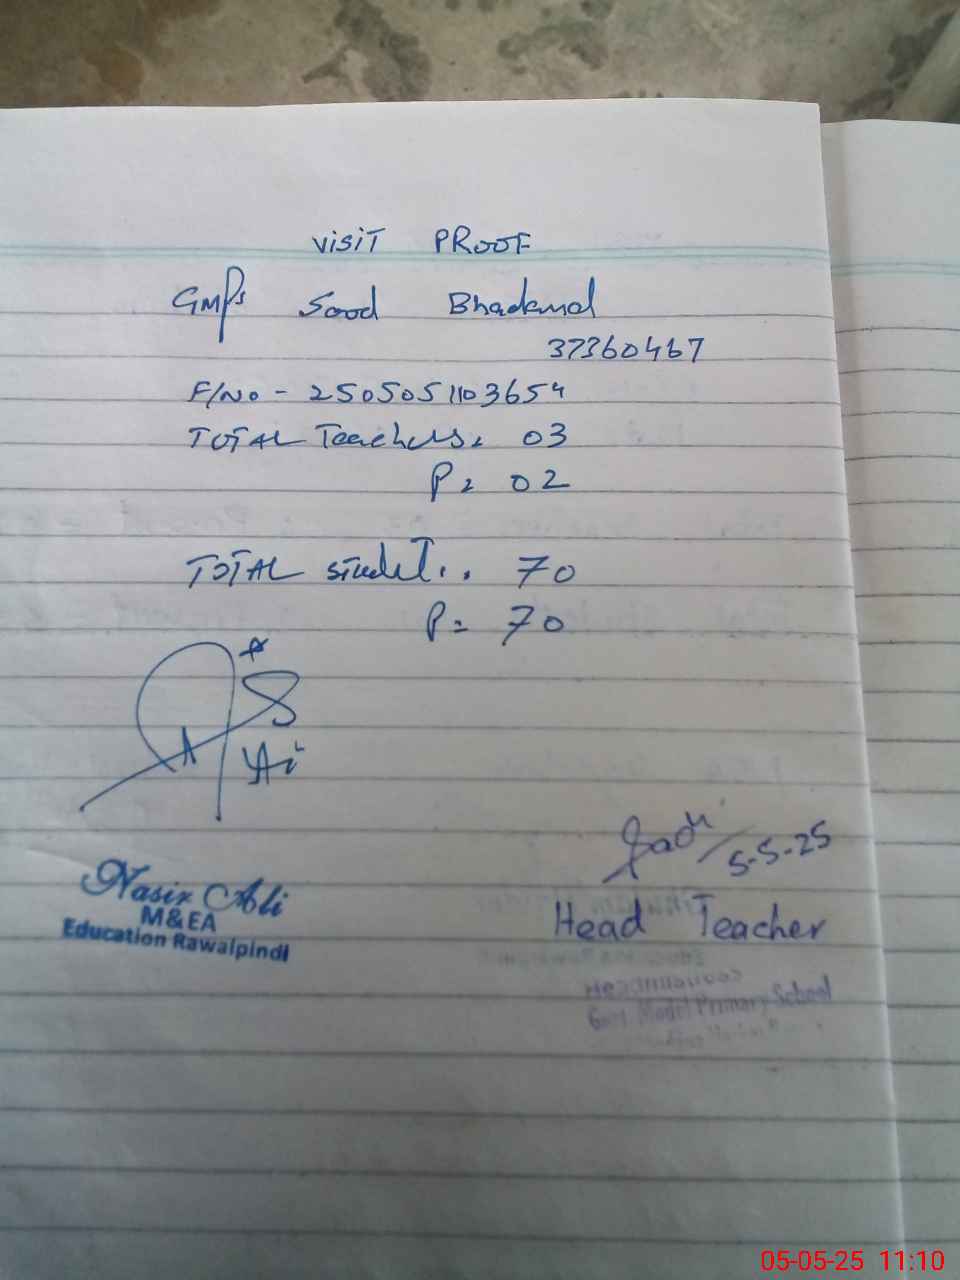 VISIT PROOF
GMPS Sood Bhadanal
37360467
F/No - 2505051103654
TOTAL Teachers. 03
P= 02
TOTAL student.. 70
P= 70
5-5-25
Nasir Ali
M&EA
Education Rawalpindi
Head Teacher
Headmistress
Govt. Model Primary School
05-05-25 11:10